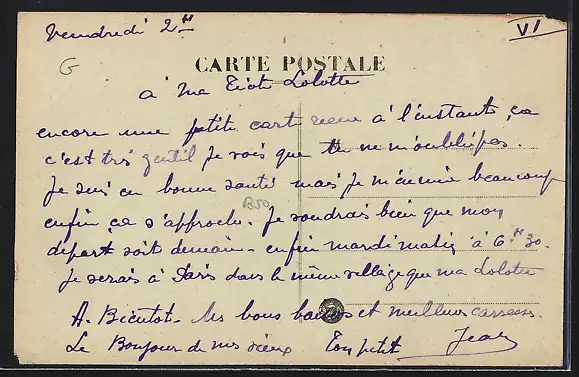 Vendredi 2H
VI
G
CARTE POSTALE
a Ma Tiote Lolotte
encore une petite carte recue à l'instant, ça
c'est très gentil je vois que tu ne m'oublie pas.
Je suis en bonne santé mais je m'ennuie beaucoup
enfin ça s'approche. Je voudrais bien que mon
départ soit demain - enfin mardi matin à 6H30.
Je serais à Paris dans le même village que ma Lolotte
A. Bientot. Mes bons baisers et meilleurs caresses.
Le Bonjour de mes vieux Ton petit Jean